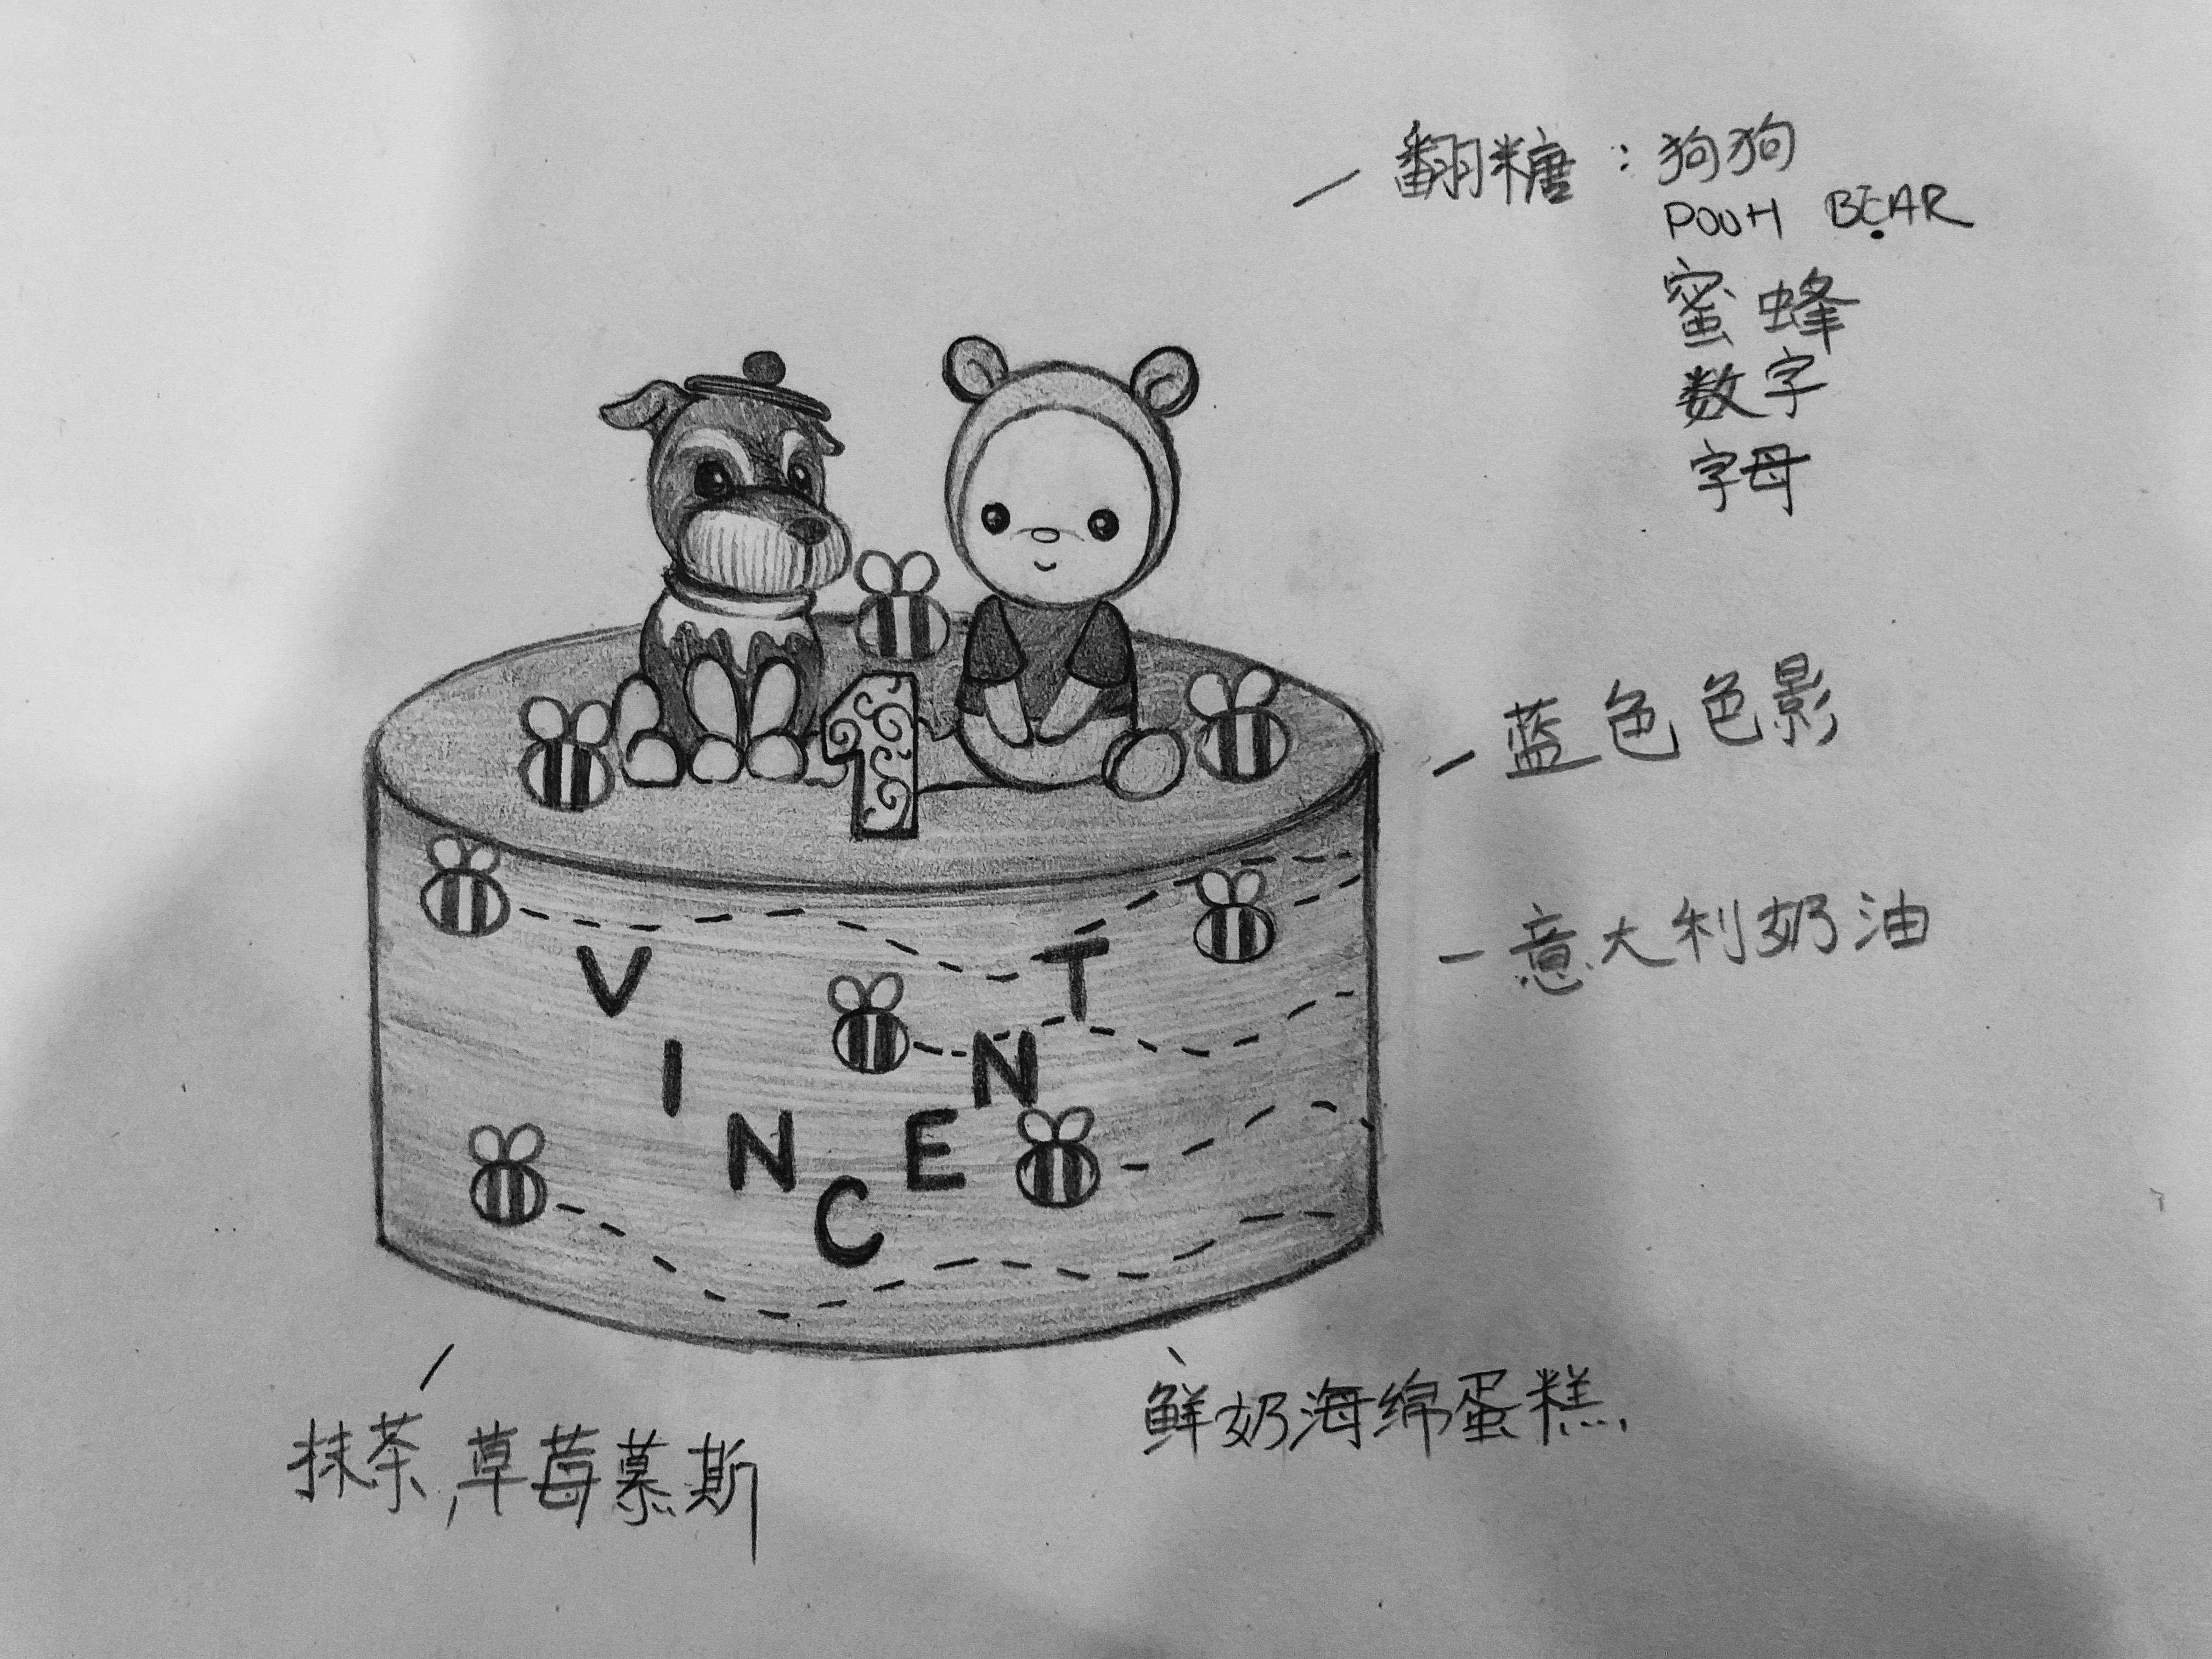 翻糖：狗狗
POOH BEAR
蜜蜂
数字
字母
1
蓝色色影
意大利奶油
VINCENT
抹茶,草莓慕斯
鲜奶海绵蛋糕.